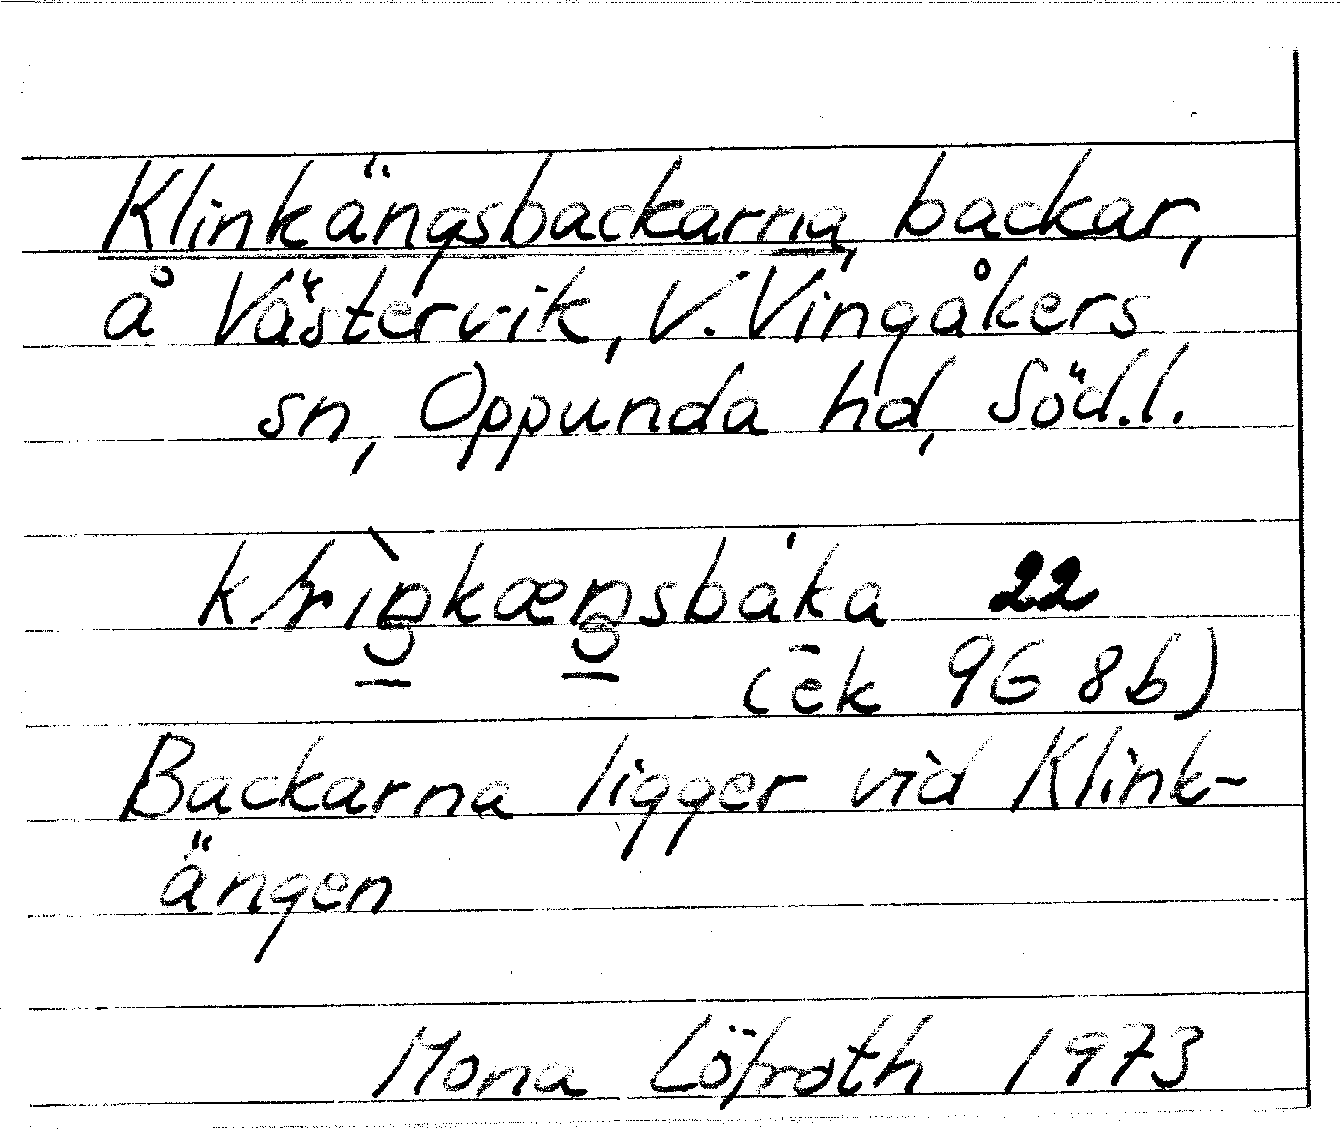 Klinkängsbackarna, backar,
å Västervik, V. Vingåkers
sn, Oppunda hd, Söd.l.
22
(ek 9G 8b)
Backarna ligger vid Klink-
ängen
Mona Löfroth 1973